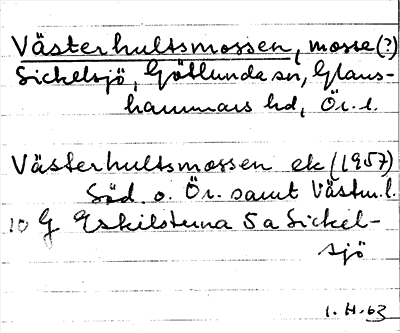 Västerhultsmossen, mosse (?)
Sickelsjö, Götlunda sn, Glans-
hammars hd, Ör. l.
Västerhultsmossen ek (1957)
Söd. o. Ör. samt Västm. l.
10 G Eskilstuna 5a Sickel-
sjö
1. H. 63